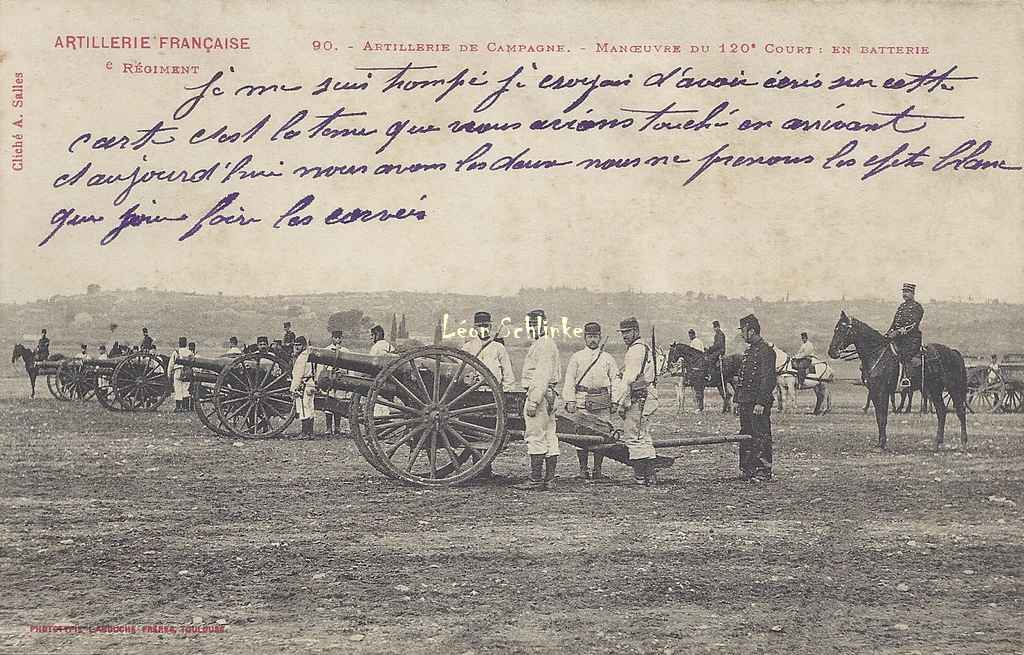 ARTILLERIE FRANÇAISE
90. - ARTILLERIE DE CAMPAGNE. - MANŒUVRE DU 120e COURT : EN BATTERIE
e RÉGIMENT
Cliché A. Salles
Je me suis trompé je croyai d'avoir écris sur cette
carte c'est la tenue que nous avions touché en arrivant
et aujourd'hui nous avons les deux nous ne prenons les efets blanc
que pour faire les corveis
Léon Schlinke
PHOTOTYPIE LABOUCHE FRÈRES, TOULOUSE